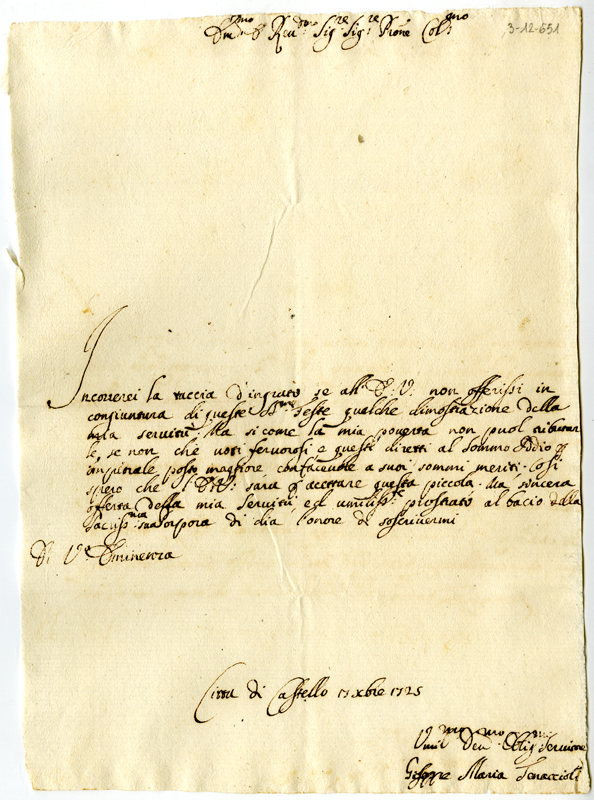 Em.mo e Rev.do Sig.re Sig.r Prone Col.mo
3-12-651
Incorrerei la taccia d'ingrato se all' E: V: non offerissi in
congiuntura di queste SS.me feste qualche dimostrazione della
mia servitù. Ma si come la mia povertà non puol tributar
le, se non che voti fervorosi e questi diretti al sommo Iddio
poste magiore confacevole a suoi sommi meriti. Così
spero che l' E: V: sarà p accettare questa piccola. Ma sincera
offerta della mia servitù ed umiliss.e prostrato al bacio della
Sacra porpora di dia l'onore di soscrivermi
Di V.a Eminenza
Città di Castello 17 xbre 1725
Umil.mo Dev.mo Oblig.mo Servitore
Giuseppe Maria Tenaccioli